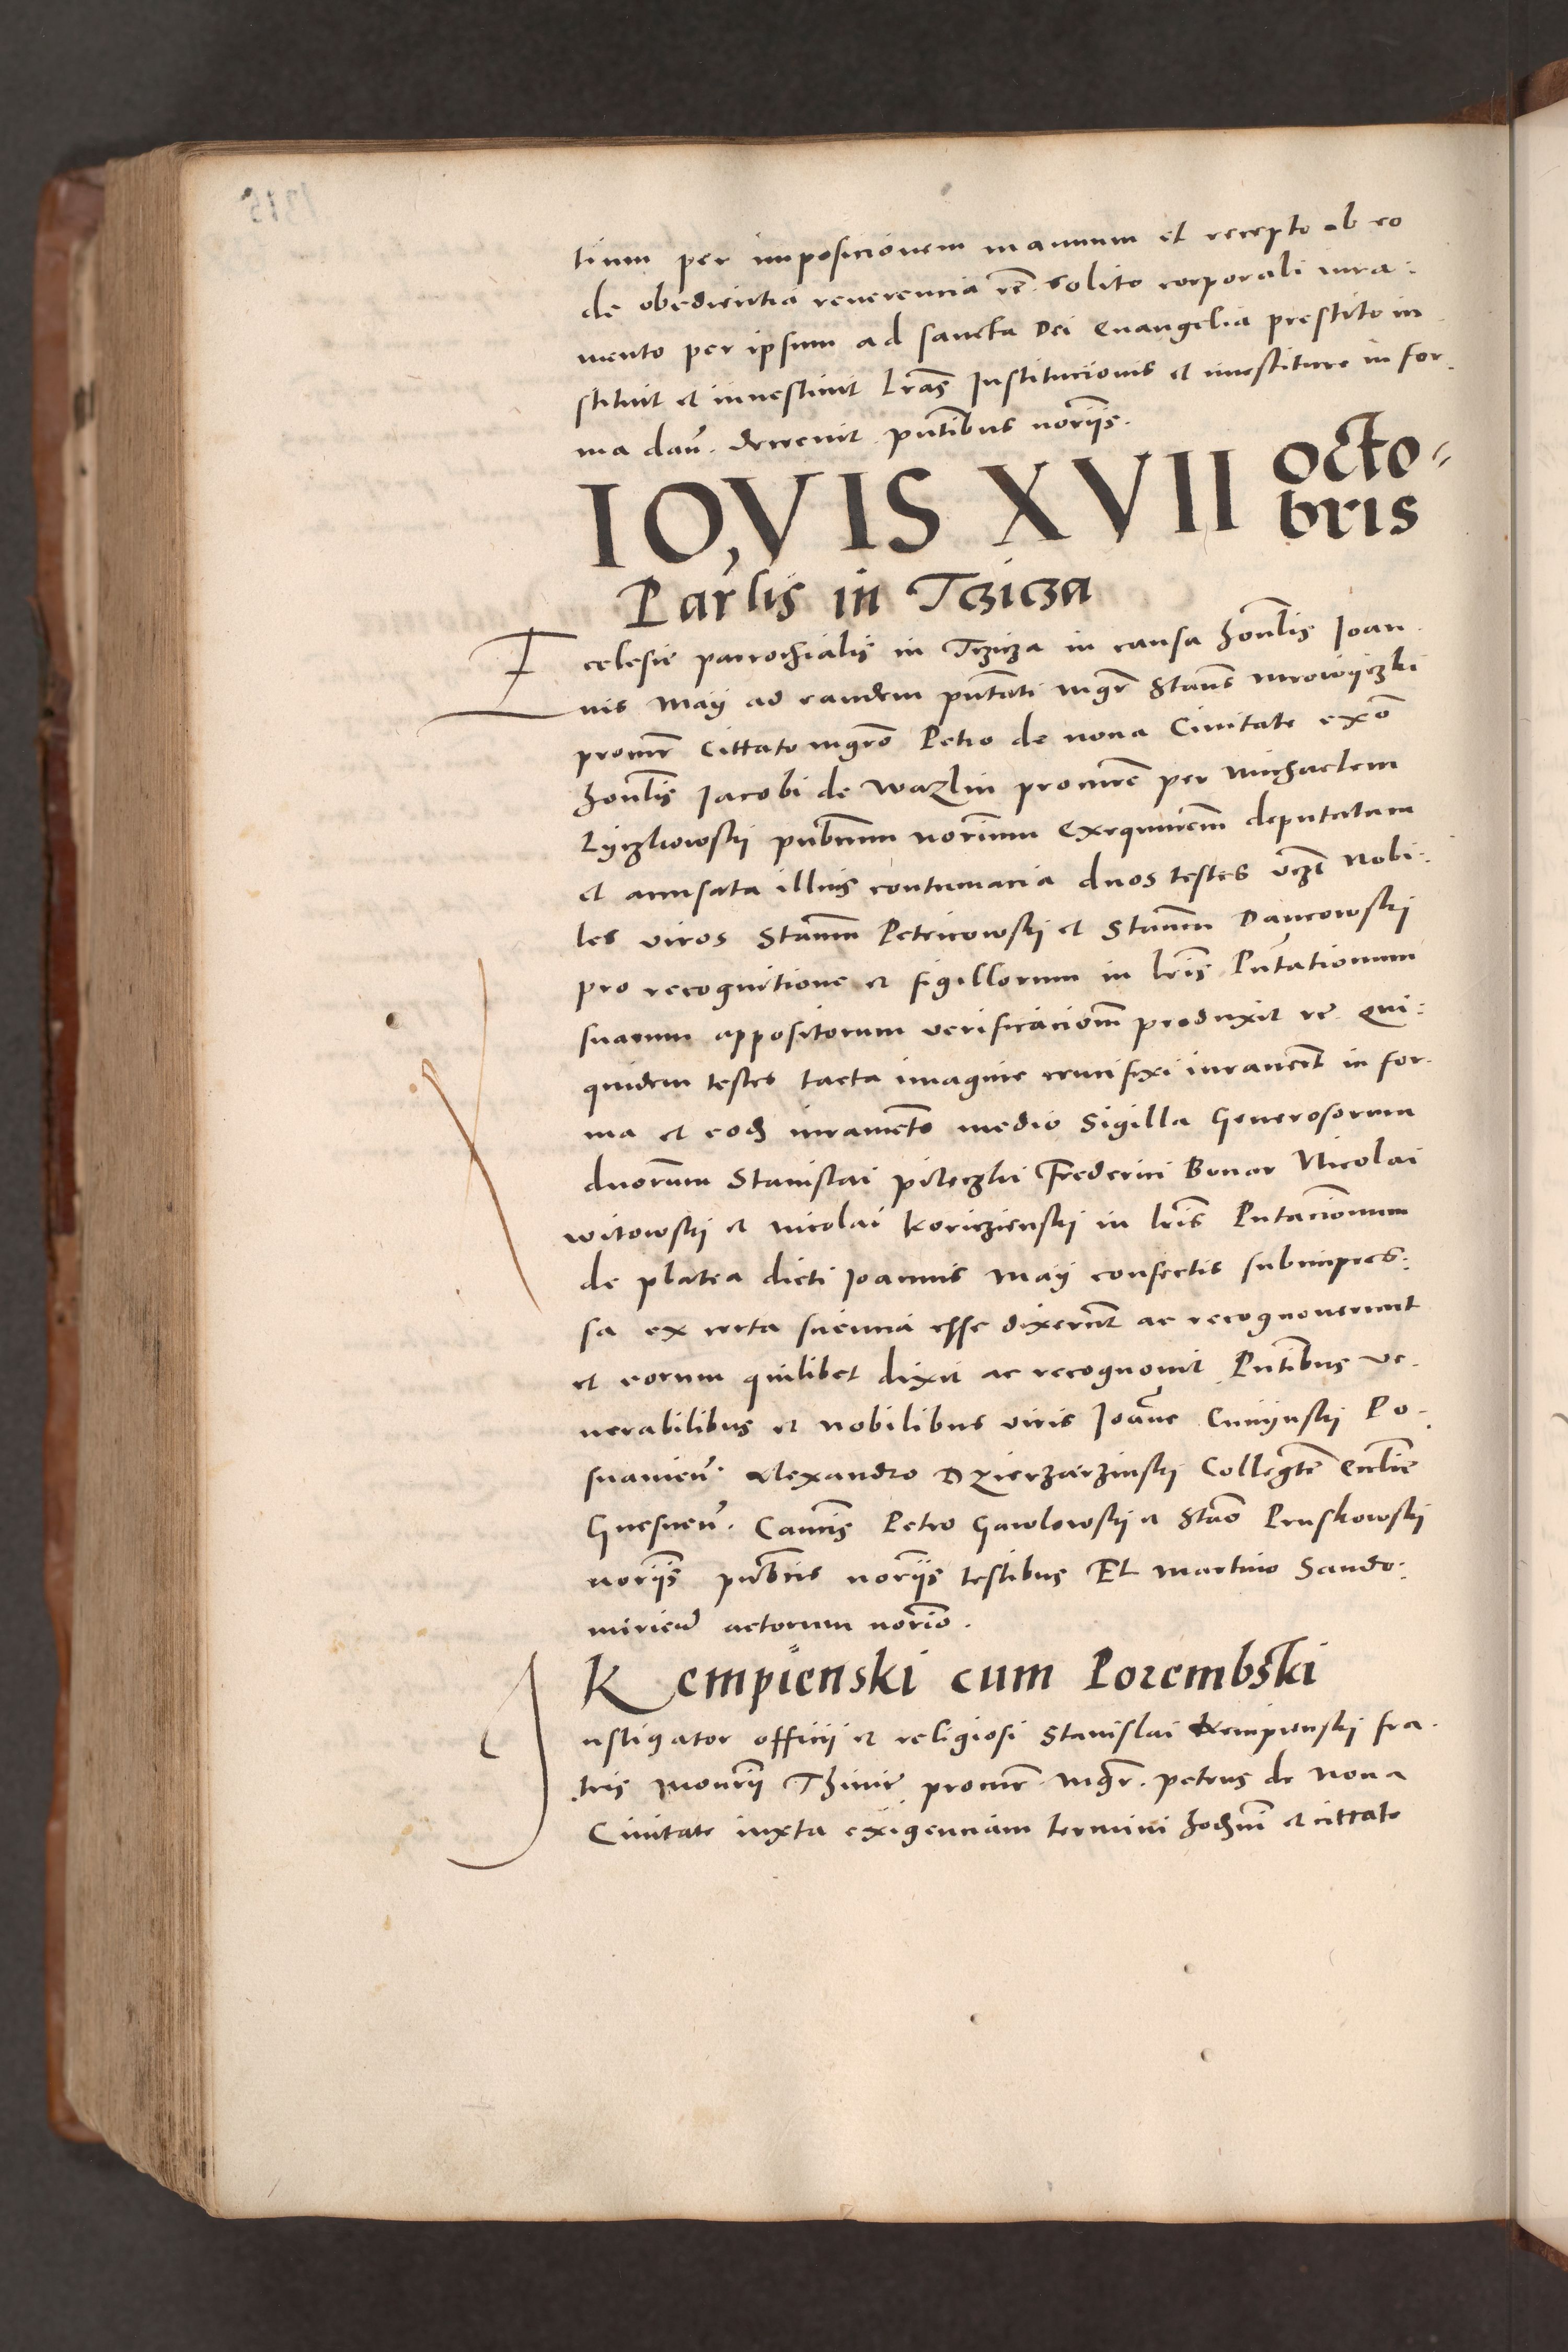 tium per imposicionem manuum et recepto ab eo
de obedientia reverencia rẽ. solito corporali iura:
mento per ipsum ad sancta Dei Evangelia prestito in
stituit et investivit Lrãs Institucionis et investiture in for.
ma dañ. decrevit. pñtibus noriĩs.
IOVIS XVII octo=
bris
Parlis in Tczicza
Ecclesie parrochialis in Tczicza in causa honlis Ioan
nis Maÿ ad eandem pñtati mgr̃ Stañs Mrowyczki
procur̃ Cittato mgrõ Petro de nova Civitate exõ
honlis Iacobi de Wazlin procurẽ per Michaelem
pubcum norium exequutem̃ deputatam
et accusata illius contumacia duos testes vcz̃t Nobi:
les viros Stanm̃ Petricowskij et Stanm̃ Dancowskij
pro recognitione et sigillorum in lrĩs Pñtationum
suarum appositorum verificaciom̃ produxit rẽ. Qui:
quidem testes tacta imagine crucifixi iuraverñt in for.
ma et eodẽ iuramẽto medio Sigilla Generosorum
dnorum̃ Stanislai pileczki Frederici Bonar Nicolai
witowskij et Nicolai Koriczienskij in lrĩs Pñtacionum
de platea dicti Ioannis Maÿ confectis subimpres:
sa ex certa sciencia esse dixerũt ac recognoverunt
et eorum quilibet dixit ac recognovit Pñtibus ve.
nerabilibus et nobilibus viris Ioãne Cuniynskij Po.
snanieñ. Alexandro Dzierzarzinskij Collegtẽ Ecclie
Gnesneñ. Canoĩs Petro Gawlowskij et Stão Pruskowskij
noriĩs pubcis noriĩs testibus Et Martino Sando:
mirieñ actorum noriõ.
Kempienski cum Porembski
Instigator officii et religiosi Stanislai Kempienskij fra.
tris Monrĩi Thinie procur̃. Mgr̃. petrus de Nova
Civitate iuxta exigenciam termini hodierni et cittato